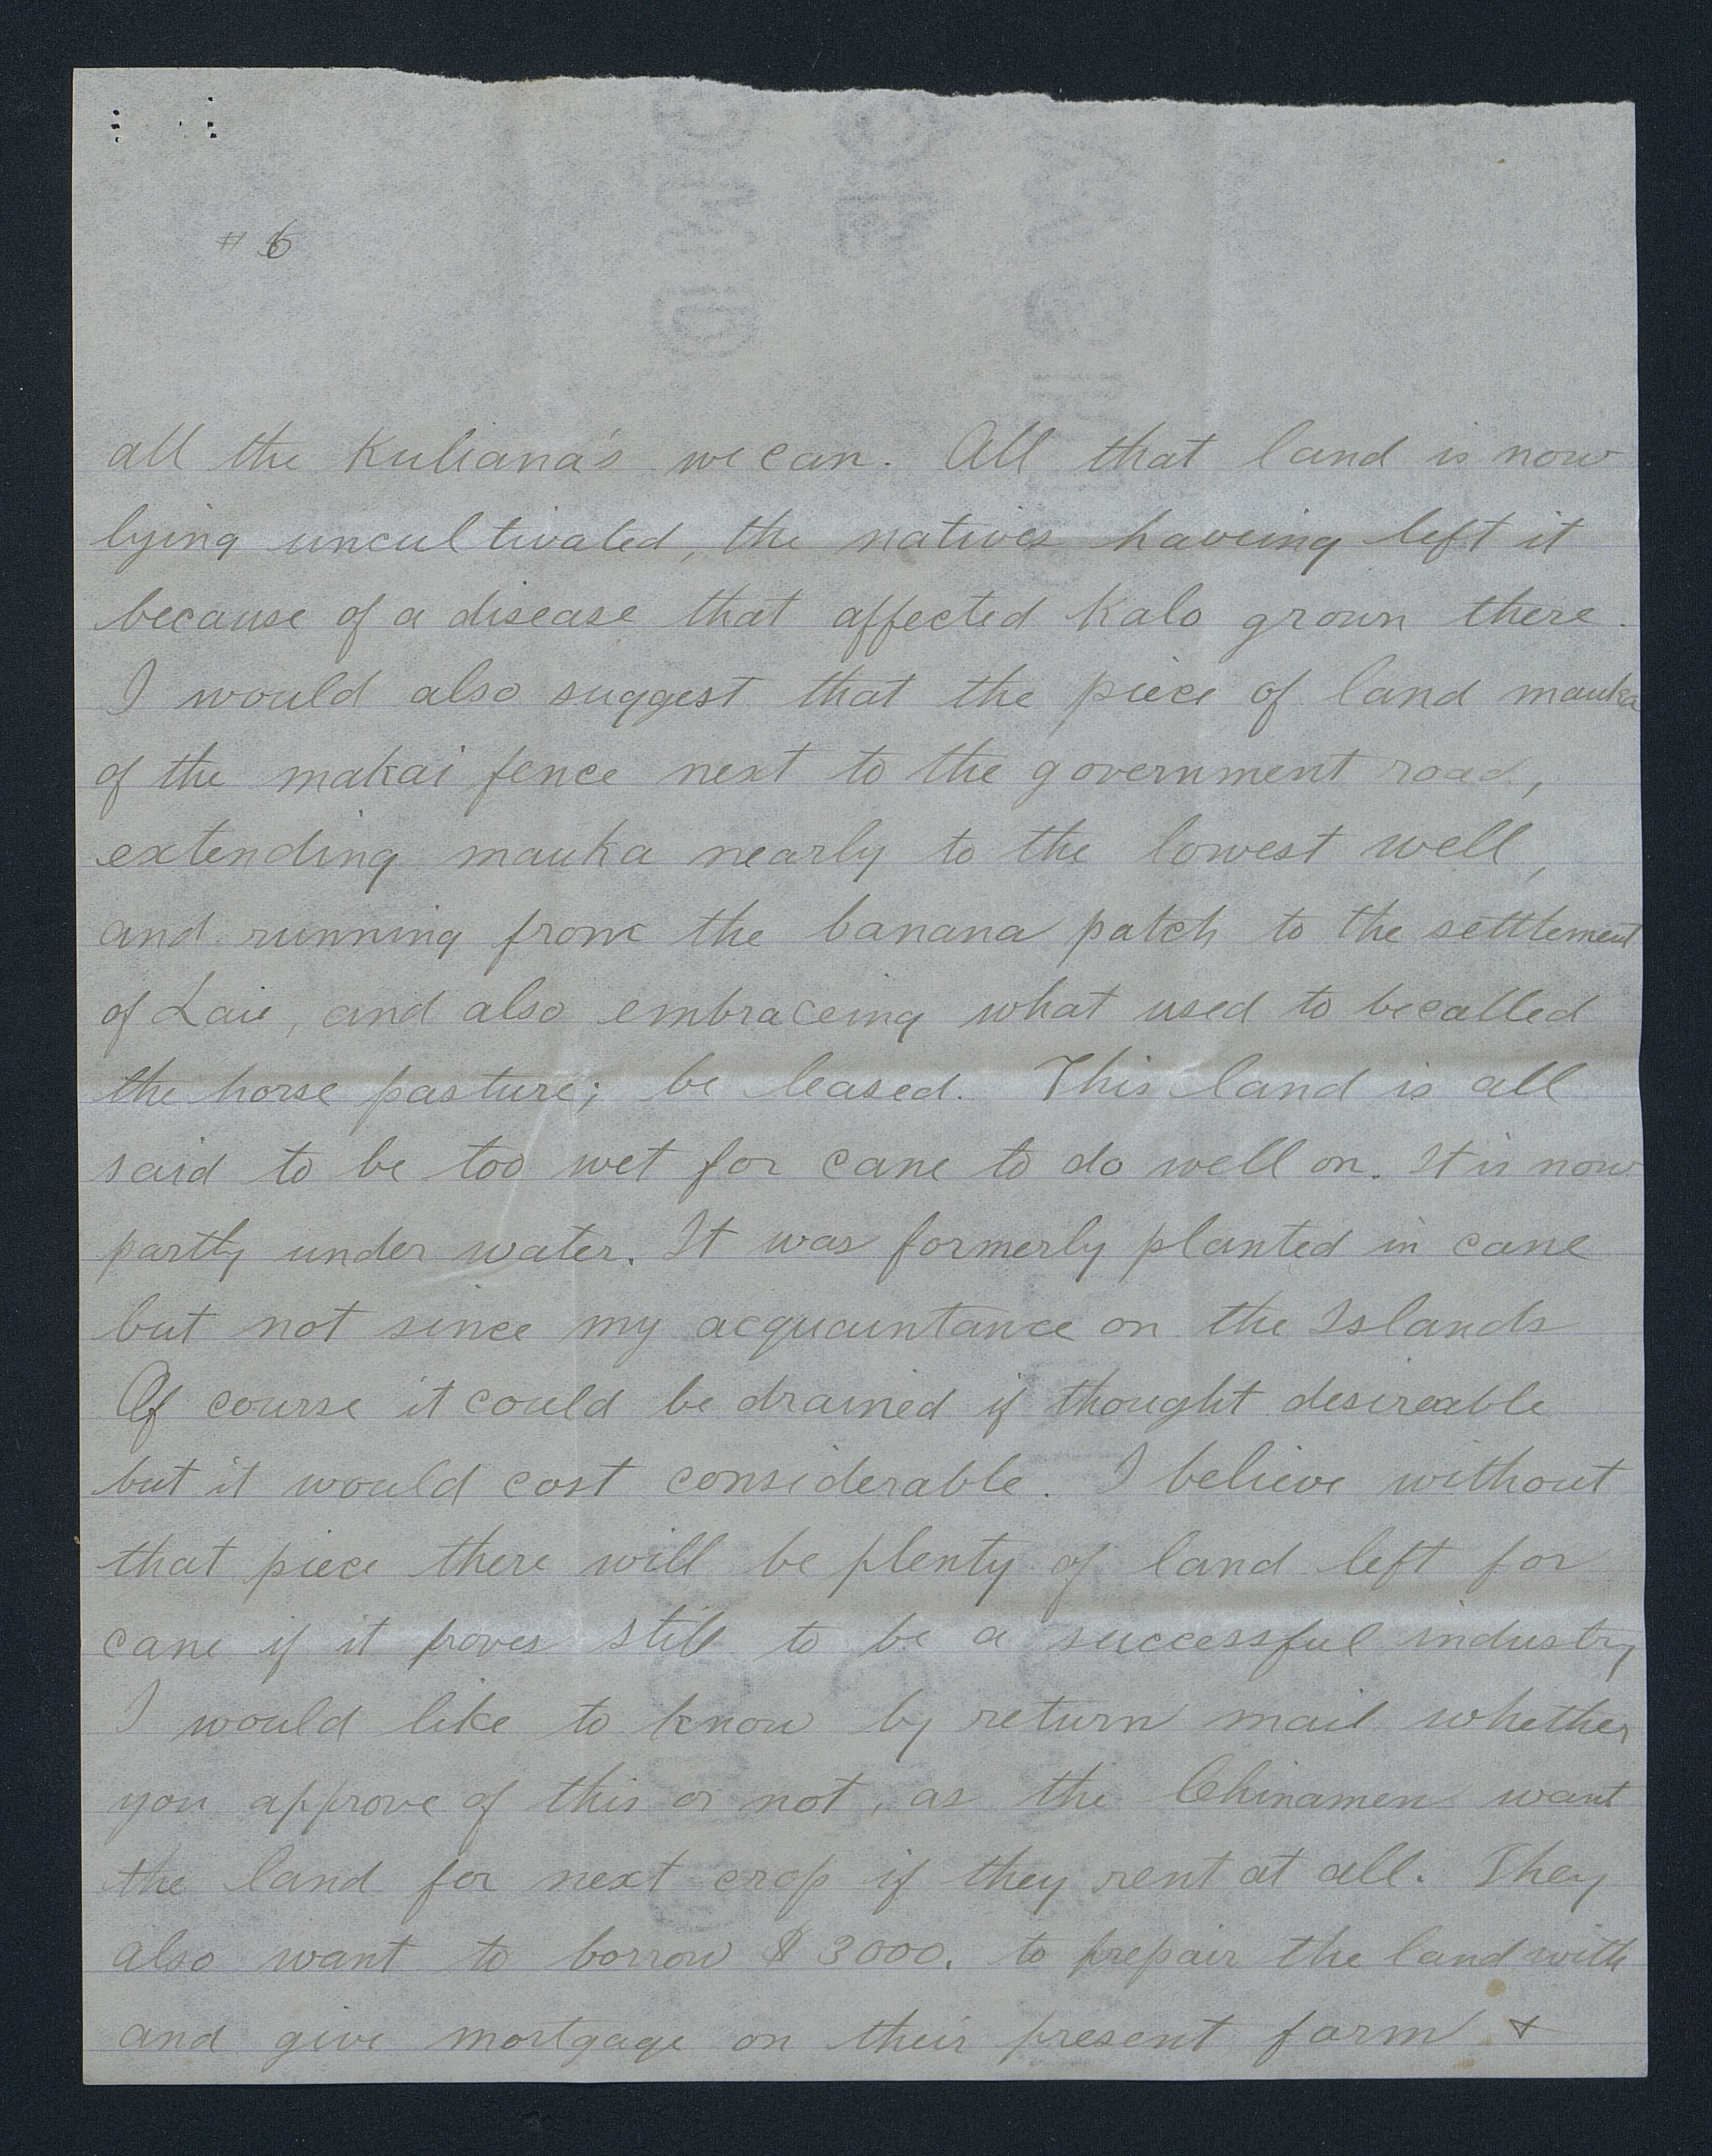 # 6
all the Kuliana's we can. All that land is now
lying uncultivated, the natives haveing left it
because of a disease that affected Kalo grown there.
I would also suggest that the piece of land mauka
of the makai fence next to the government road,
extending mauka nearly to the lowest well,
and running from the banana patch to the settlement
of Laie, and also embraceing what used to be called
the horse pasture; be leased. This land is all
said to be too wet for cane to do well on. It is now
partly under water. It was formerly planted in cane
but not since my acquaintance on the Islands
Of course it could be drained if thought desireable
but it would cost considerable. I believe without
that piece there will be plenty of land left for
cane if it proves still to be a successful industry
I would like to know by return mail whether
you approve of this or not, as the Chinamen want
the land for next crop if they rent at all. They
also want to borrow $3000. to prepair the land with
and give mortgage on their present farm &